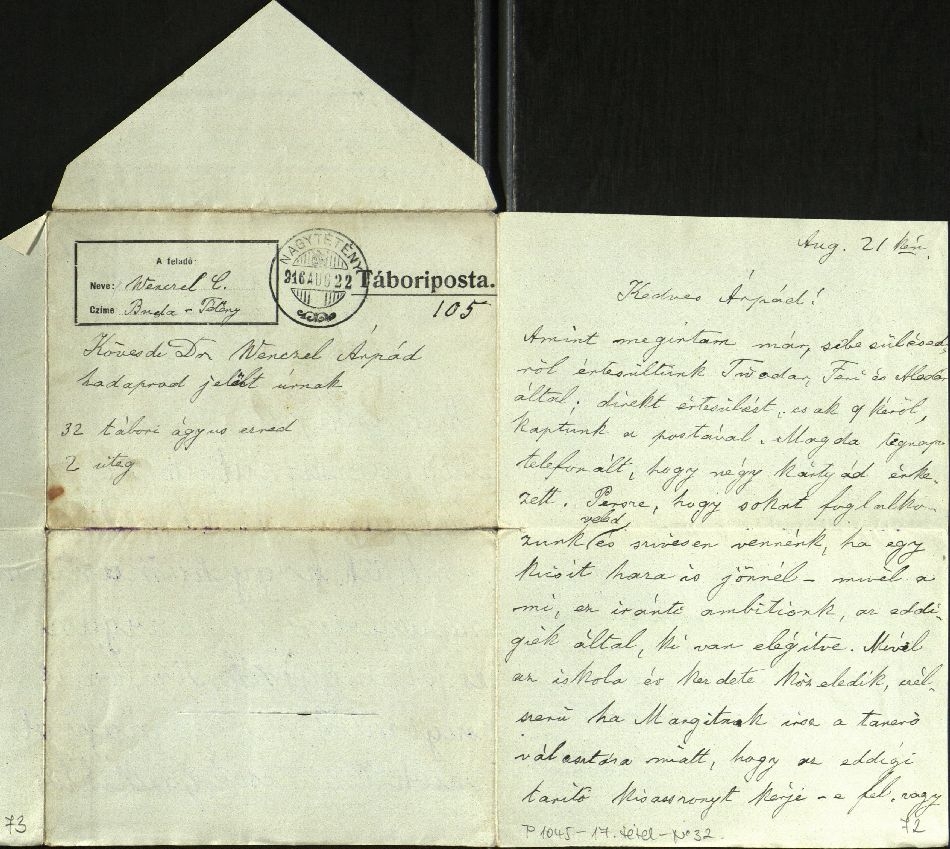 A feladó:
Neve: Wenczel C.
Czíme Buda-Tétény
NAGYTÉTÉNY
916 AUG 22
Tábori posta.
105
Kövesdi Dr Wenczel Árpád
hadapród jelölt úrnak
32 tábori ágyus ezred
2 üteg
73
Aug. 21 kén.
Kedves Árpád!
Amint megirtam már, sebesülésed
ről értesültünk Feri és
által; direkt értesülést, csak 9 kéről,
kaptunk a postával. Magda tegnap
telefonált, hogy négy kártyád érke-
zett. Persze, hogy sokat foglalko-
veled
zunk és szivesen vennénk, ha egy
kicsit haza is jönnél - mivel a
mi, ez iránti ambitionk, az eddi-
giek által, ki van elégitve. Mivel
az iskola év kezdete közeledik, cél-
szerü ha Margitnak irsz a tanerő
választása miatt, hogy az eddigi
tanító kisasszonyt kérje-e fel, vagy
P 1045-17. tétel-No 32.
72